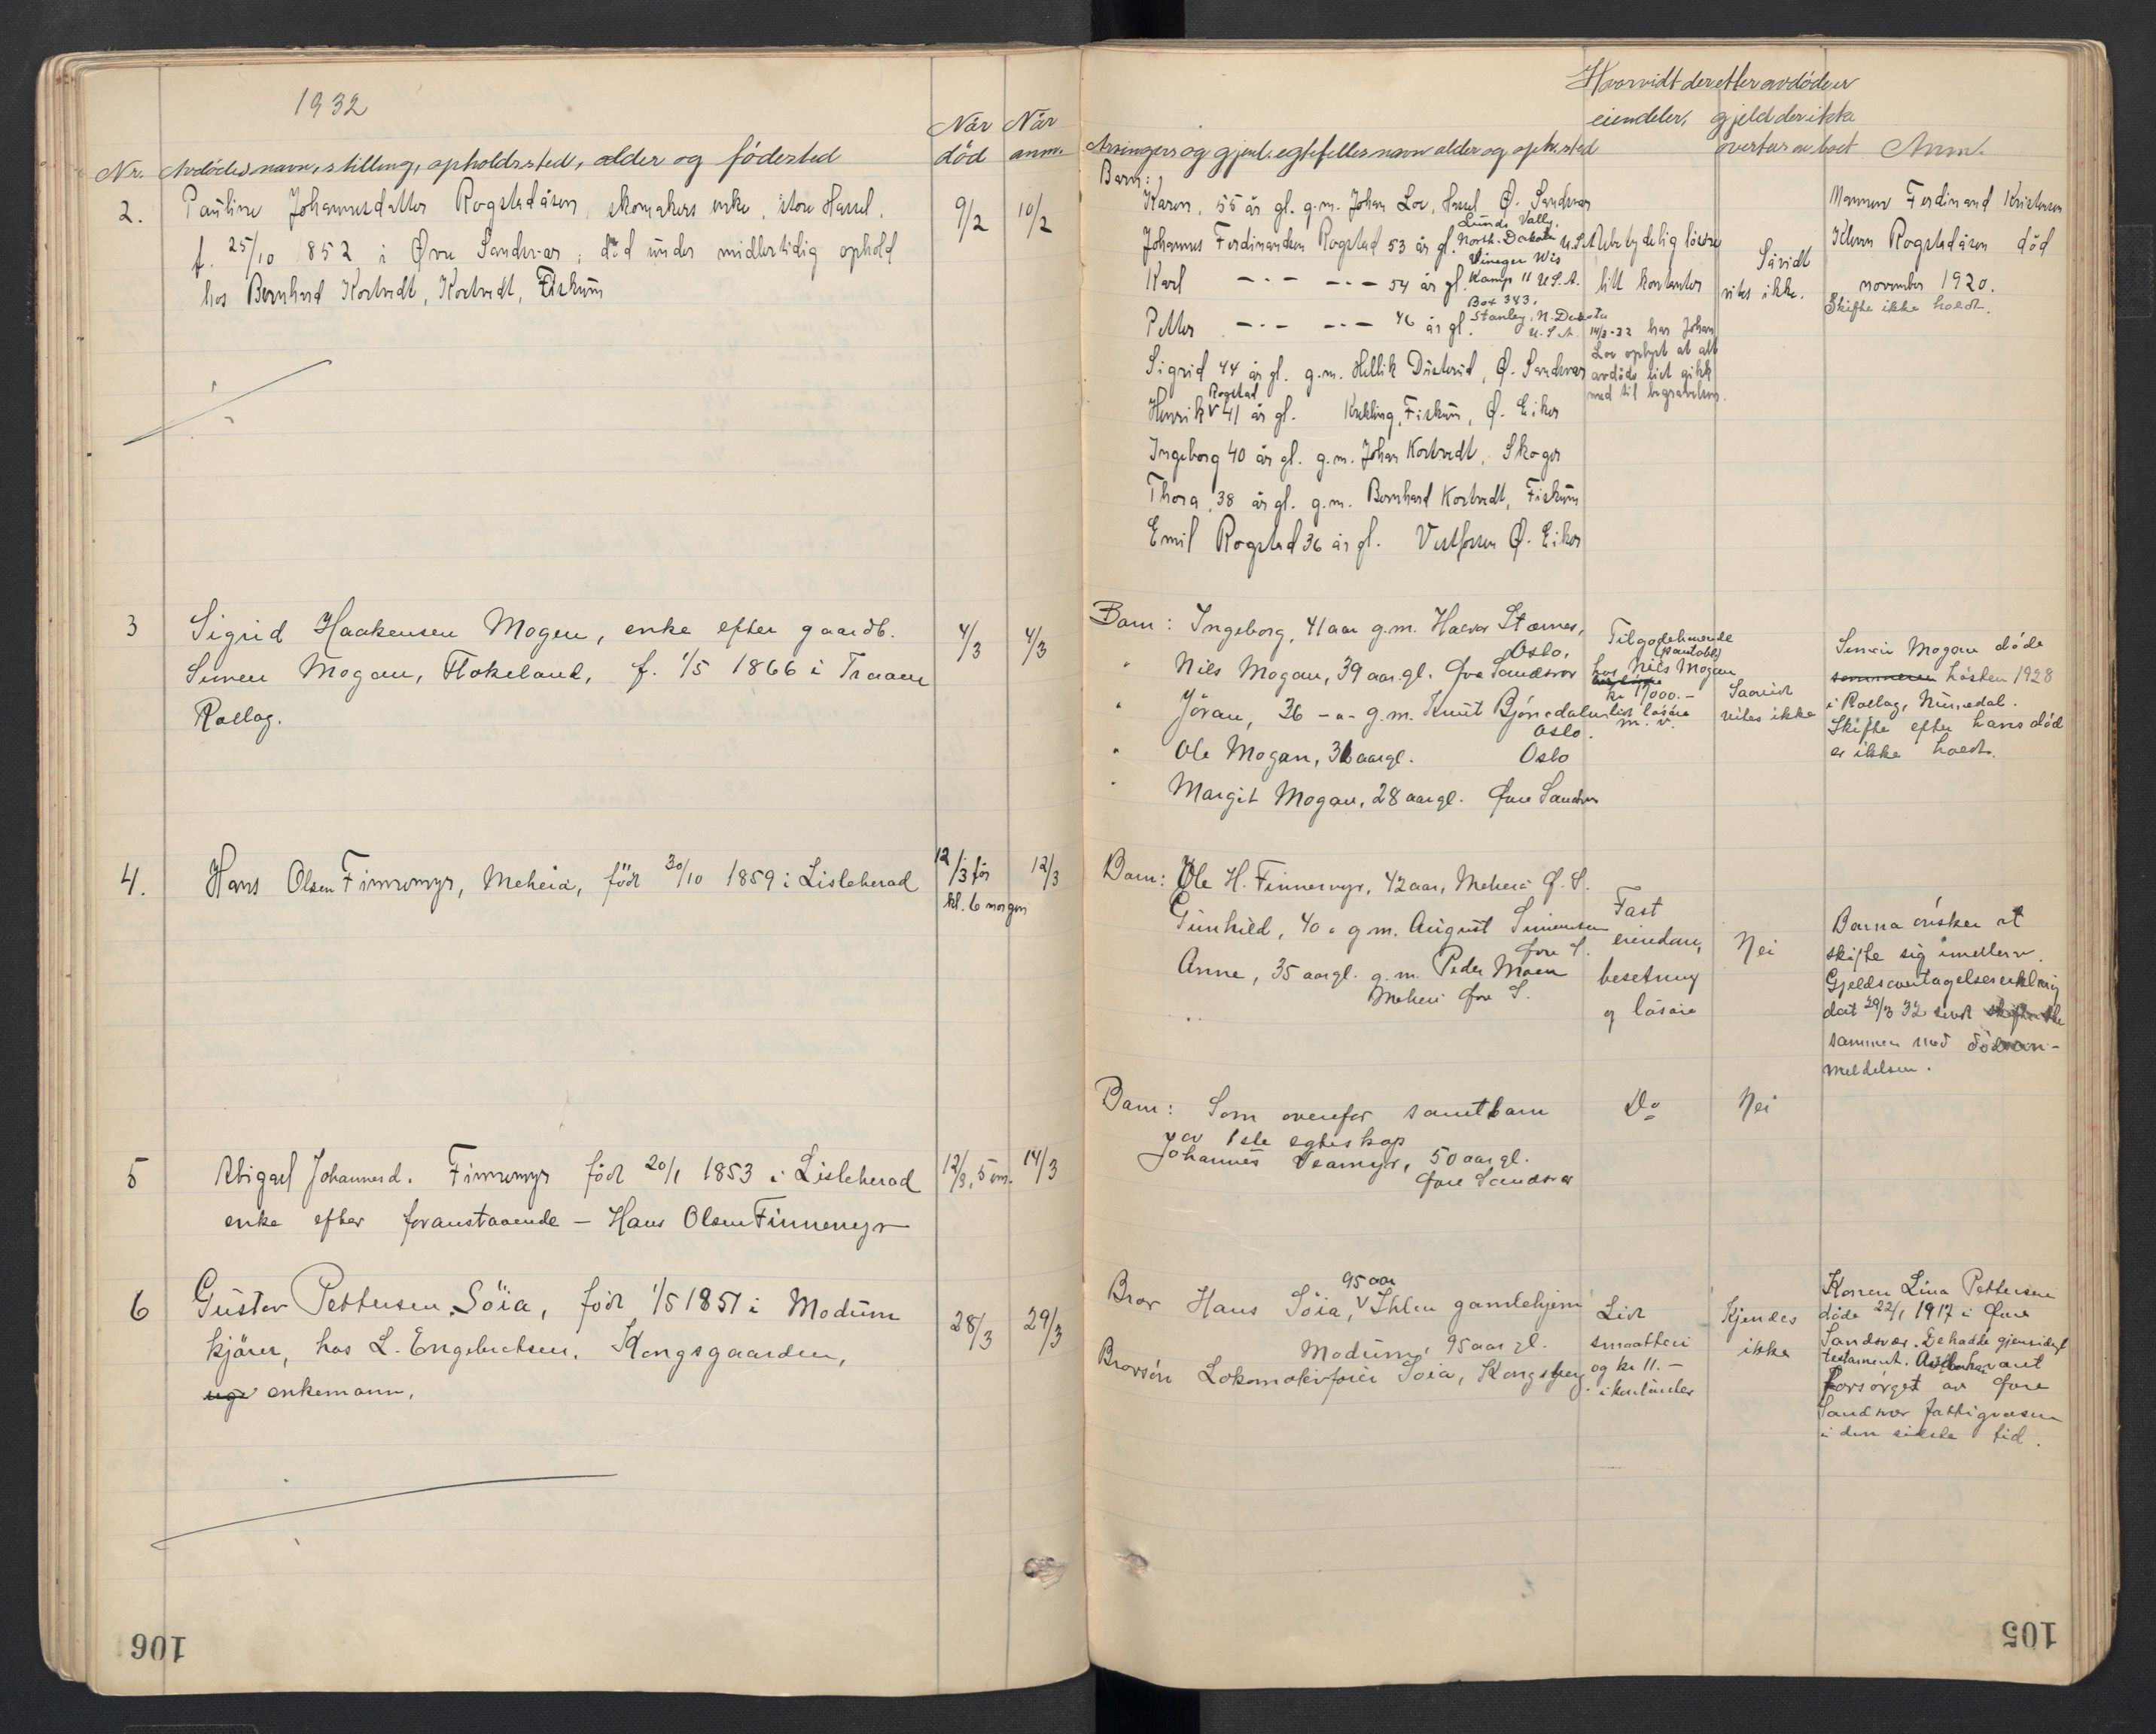 1932
Nr. Avdødes navn, stilling, opholdssted, alder og fødested
Når død
Når anm.
2. Pauline Johannesdatter Rogstadåsen, skomakers enke, store Hassel.
f. 25/10 1852 i Øvre Sandsvær; død under midlertidig ophold
hos Bernhard Kortvedt, Kortvedt, Fiskum
9/2
10/2
3 Sigrid Haakensen Mogen, enke efter gaardb.
Simen Mogan, Flokeland, f. 1/5 1866 i Traaen
Rollag.
4/3
4/3
4. Hans Olsen Finnemyr, Meheia, född 30/10 1859 i Lisleherad
12/3 før
kl. 6 morgen
12/3
5 Abigael Johannesd. Finnemyr född 20/1 1853 i Lisleherad
enke efter foranstaaende - Hans Olsen Finnemyr
12/3, 5 em.
14/3
6 Gustav Pettersen Söia, född 1/5 1851 i Modum
kjører, hos L. Engebretsen, Kongsgaarden,
enkemann.
28/3
29/3
106
Hvorvidt der efter avdøde er
eiendeler, gjeld der ikke
Arvingers og gjenl. egtefelles navn alder og oph. sted
overtas av boet
Anm.
Barn:
Karen, 55 år gl. g.m. Johan Loe, Hassel Ø. Sandsvær
Lunds Vally
Johannes Ferdinandsen Rogstad 53 år gl. North-Dakota U.S.A.
Vineger Wis
Karl -.- -.- 54 år gl. Kamp 11 U.S.A.
Box 383.
Petter -.- -.- 46 år gl. Stanley, N. Dakota
U.S.A.
Sigrid 44 år gl. g.m. Hellik Dåsterud, Ø. Sandsvær
Rogstad
Henrik 41 år gl. Krekling, Fiskum, Ø. Eiker
Ingeborg 40 år gl. g.m. Johan Kortvedt, Skoger
Thora, 38 år gl. g.m. Bernhard Kortvedt, Fiskum
Emil Rogstad 36 år gl. Vestfossen Ø. Eiker
Ubetydelig løsøre
litt kontanter
14/3-32 har Johan
Loe oplyst at alt
avdøde eiet gikk
med til begravelsen.
Såvidt
vites ikke.
Mannen Ferdinand Kristensen
Kleven Rogstadåsen død
november 1920.
Skifte ikke holdt.
Barn: Ingeborg, 41 aar g.m. Halvor Stærnes,
Oslo.
" Nils Mogan, 39 aar. gl. Øvre Sandsvær
" Jöran, 36 -"- g.m. Knut Bjørndalen
Oslo.
" Ole Mogan, 31 aar gl. Oslo
" Margit Mogan, 28 aar gl. Øvre Sandsvær
Tilgodehavende
(pantobl.)
hos Nils Mogan
kr 17000.-
litt løsøre
m. v.
Saavidt
vites ikke
Simen Mogan døde
sommeren høsten 1928
i Rollag, Numedal.
Skifte efter hans død
er ikke holdt.
Barn: Ole H. Finnemyr, 42 aar, Meheia Ø. S.
Gunhild, 40 " g.m. August Simensen
Øvre S.
Anne, 35 aar gl. g.m. Peder Moen
Meheia Øvre S.
Fast
eiendom,
besetning
og løsøre
Nei
Barna ønsker at
skifte sig imellem.
Gjeldsovertagelseserklæring
dat 29/3 32 sendt
sammen med dødsan-
meldelsen.
Barn: Som ovenfor samt barn
av 1ste egteskap
Johannes Veamyr, 50 aar gl.
Øvre Sandsvær
Do
Nei
95 aar
Bror Hans Söia, Ihlen gamlehjem
Modum, 95 aar gl.
Brorsön Lokomotivfører Söia, Kongsberg
Litt
smaatteri
og kr 11.-
i kontanter
Kjendes
ikke
Konen Lina Pettersen
døde 22/1 1917 i Øvre
Sandsvær. De hadde gjensidigt
testament. Avdøde har vært
forsørget av Øvre
Sandsvær fattigvæsen
i den sidste tid.
105